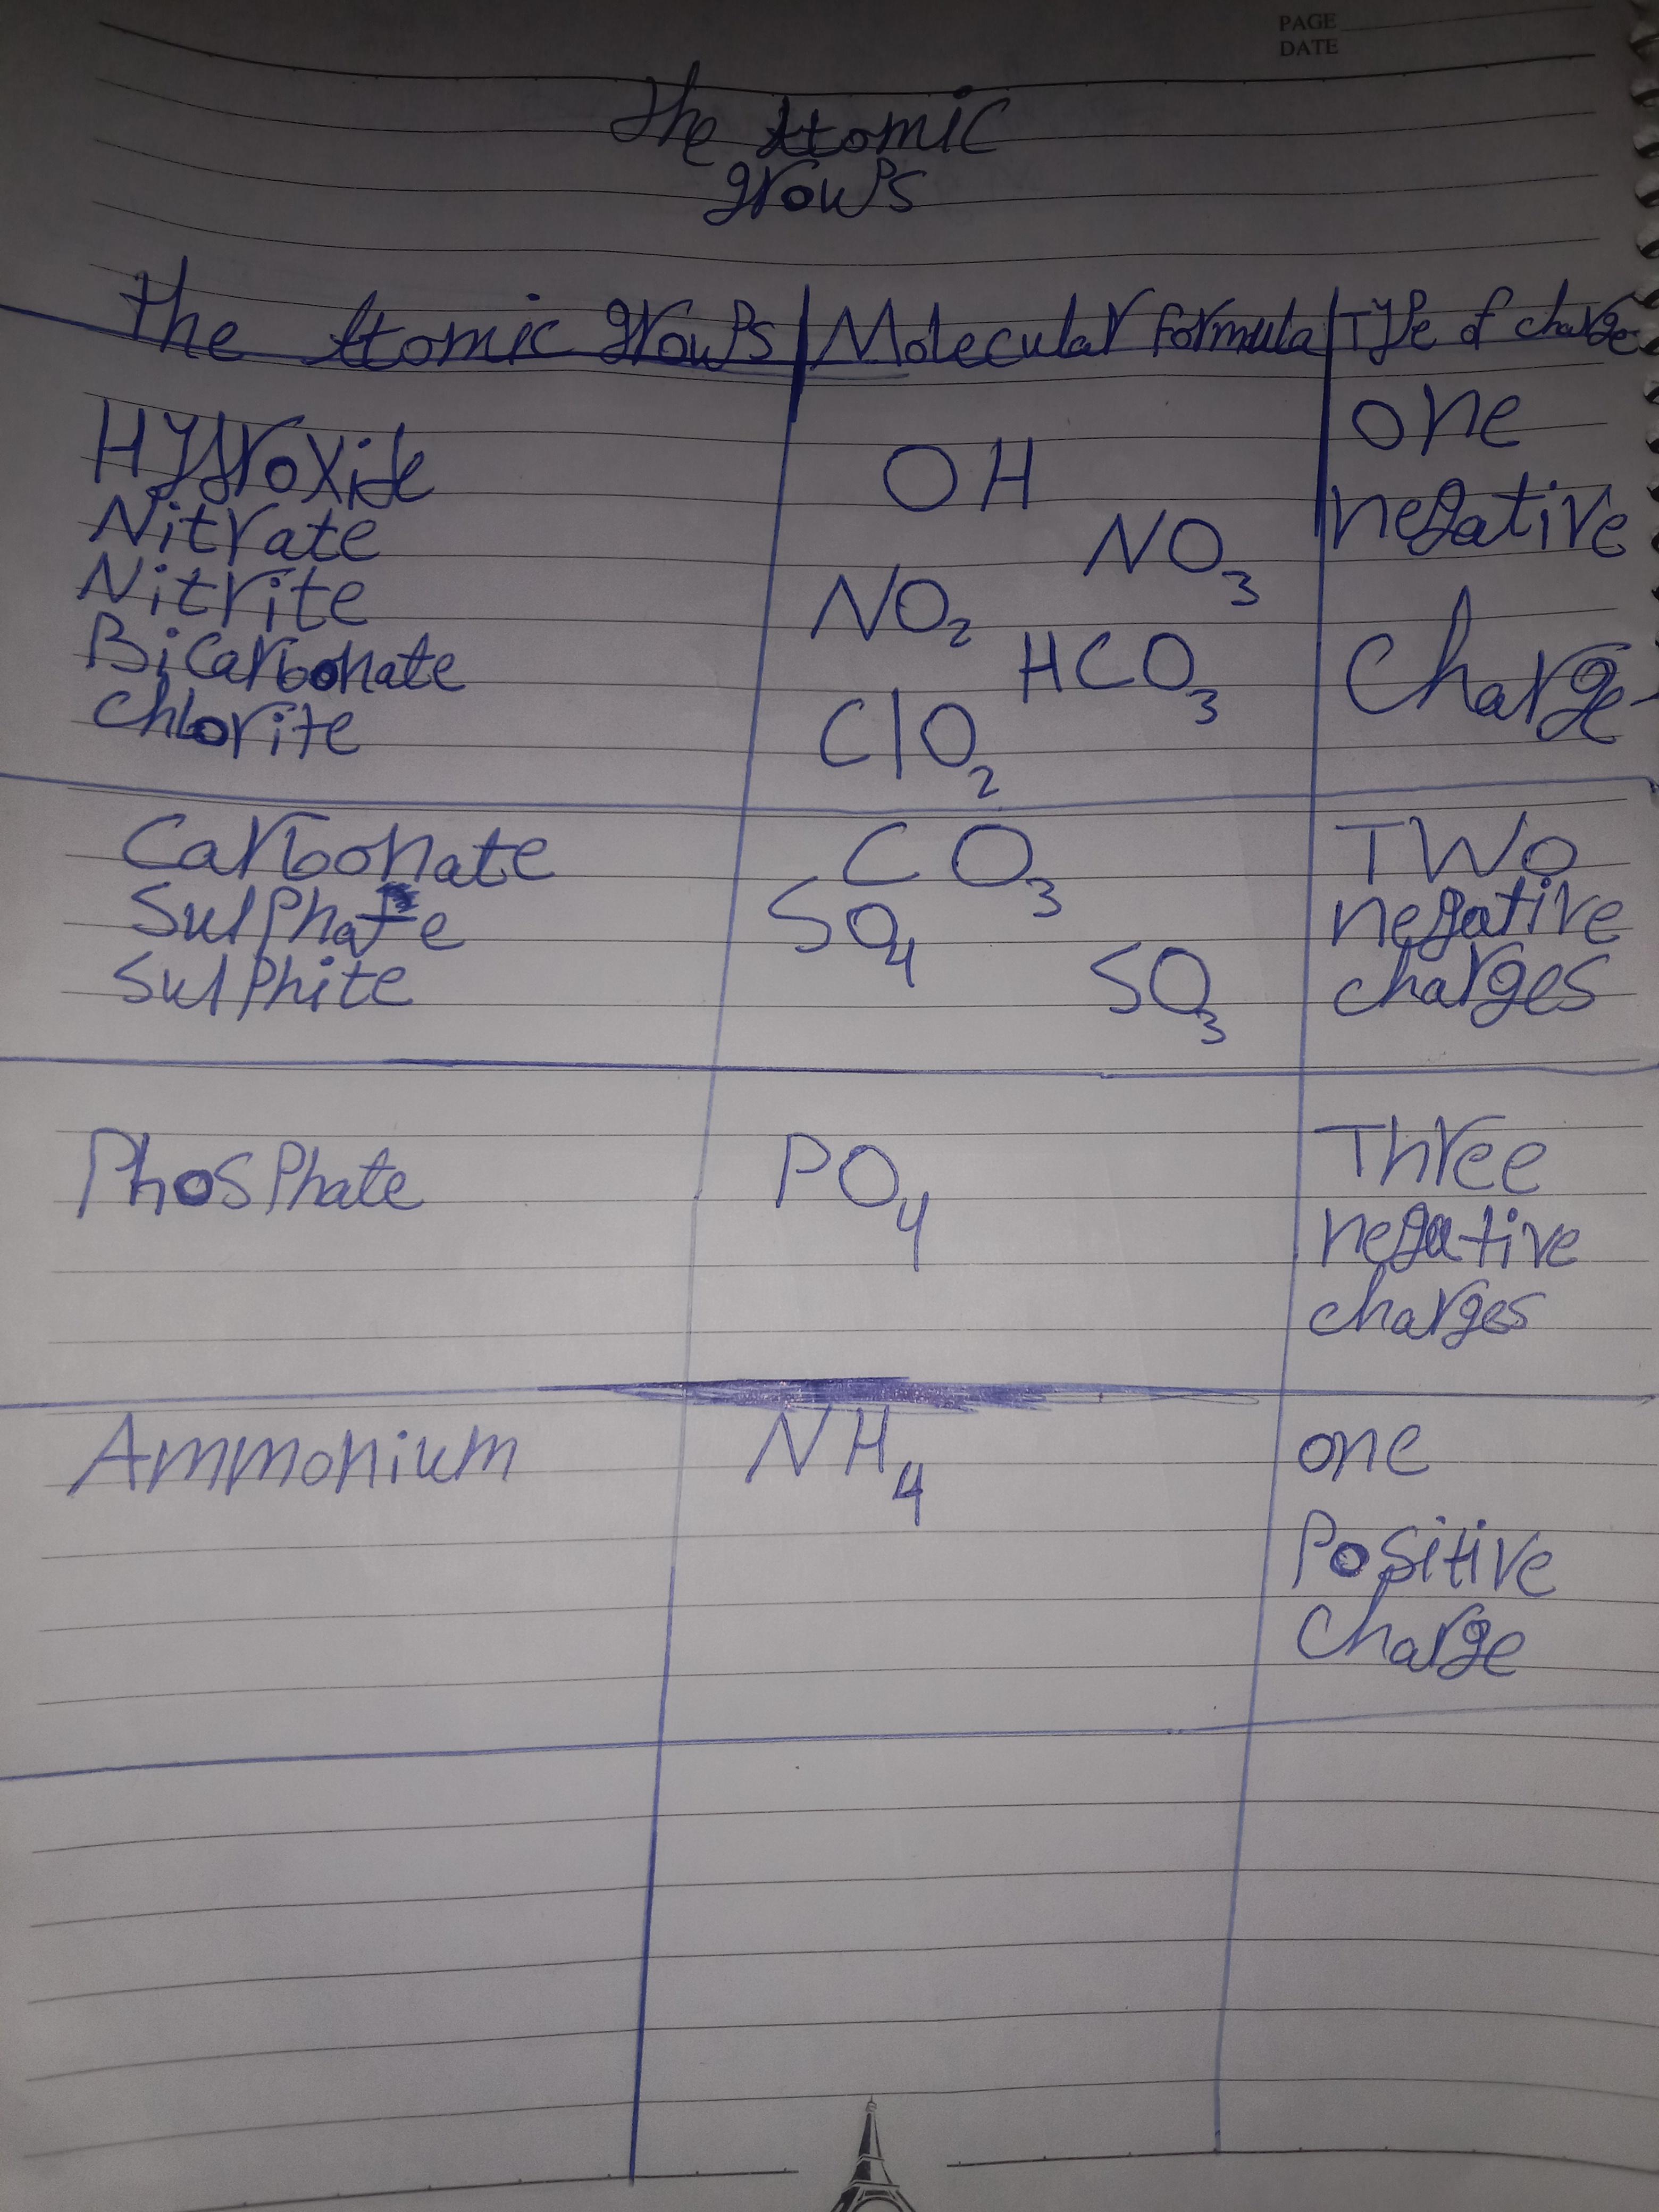 PAGE
DATE
The Atomic
groups
The Atomic groups Molecular formula Type of charge
Hydroxide OH one
Nitrate NO₃ negative
Nitrite NO₂
Bicarbonate HCO₃ charge
Chlorite ClO₂
Carbonate CO₃ TWO
Sulphate SO₄ negative
Sulphite SO₃ charges
Phosphate PO₄ Three
negative
charges
Ammonium NH₄ one
Positive
charge